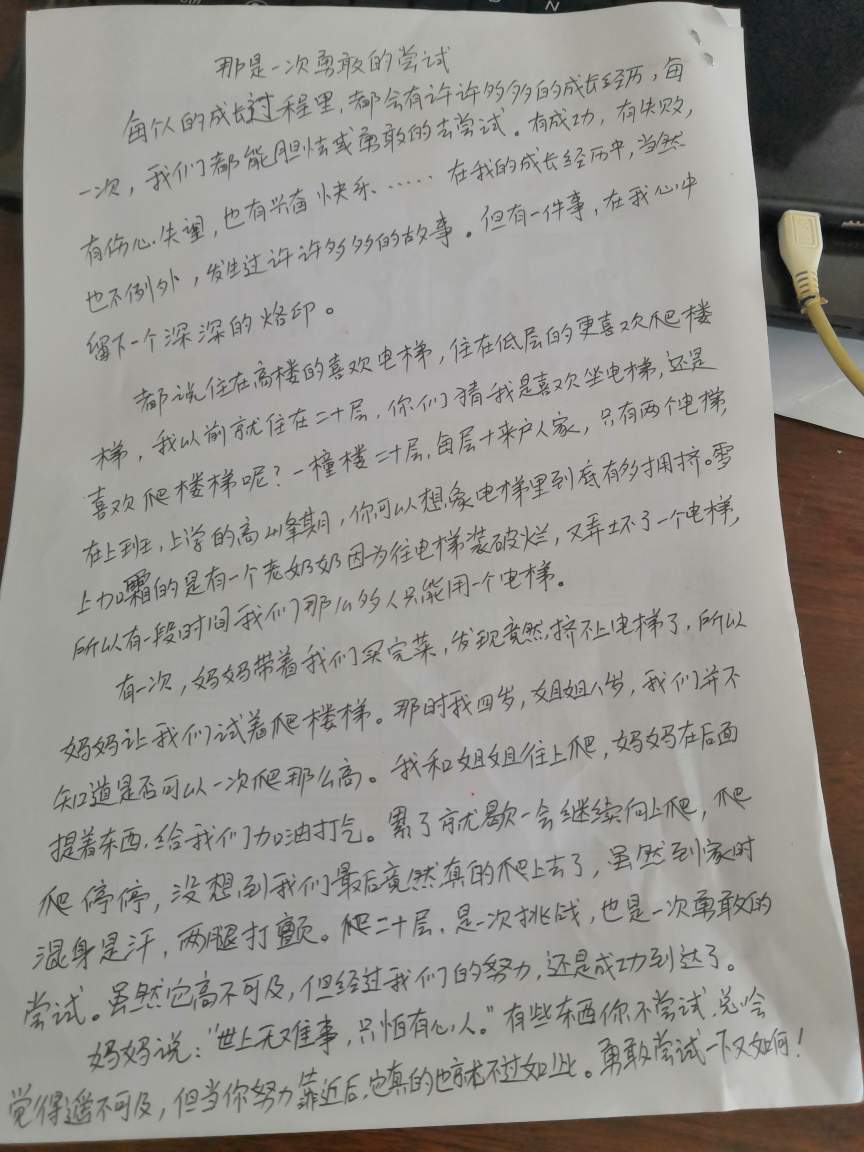 那是一次勇敢的尝试
每个人的成长过程里，都会有许许多多的成长经历，每
一次，我们都能胆怯或勇敢的去尝试。有成功，有失败，
有伤心失望，也有兴奋快乐……在我的成长经历中，当然
也不例外，发生过许许多多的故事。但有一件事，在我心中
留下一个深深的烙印。
都说住在高楼的喜欢电梯，住在低层的更喜欢爬楼
梯，我以前就住在二十层，你们猜我是喜欢坐电梯，还是
喜欢爬楼梯呢？一橦楼二十层，每层十来户人家，只有两个电梯，
在上班，上学的高峰期，你可以想象电梯里到底有多拥挤。雪
上加霜的是有一个老奶奶因为往电梯装破烂，又弄坏了一个电梯，
所以有一段时间我们那么多人只能用一个电梯。
有一次，妈妈带着我们买完菜，发现竟然挤不上电梯了，所以
妈妈让我们试着爬楼梯。那时我四岁，姐姐八岁，我们并不
知道是否可以一次爬那么高。我和姐姐往上爬，妈妈在后面
提着东西，给我们加油打气。累了就歇一会继续向上爬，爬
爬停停，没想到我们最后竟然真的爬上去了，虽然到家时
混身是汗，两腿打颤。爬二十层，是一次挑战，也是一次勇敢的
尝试。虽然它高不可及，但经过我们的努力，还是成功到达了。
妈妈说：“世上无难事，只怕有心人。”有些东西你不尝试，总会
觉得遥不可及，但当你努力靠近后，它真的也就不过如此。勇敢尝试一下又如何！